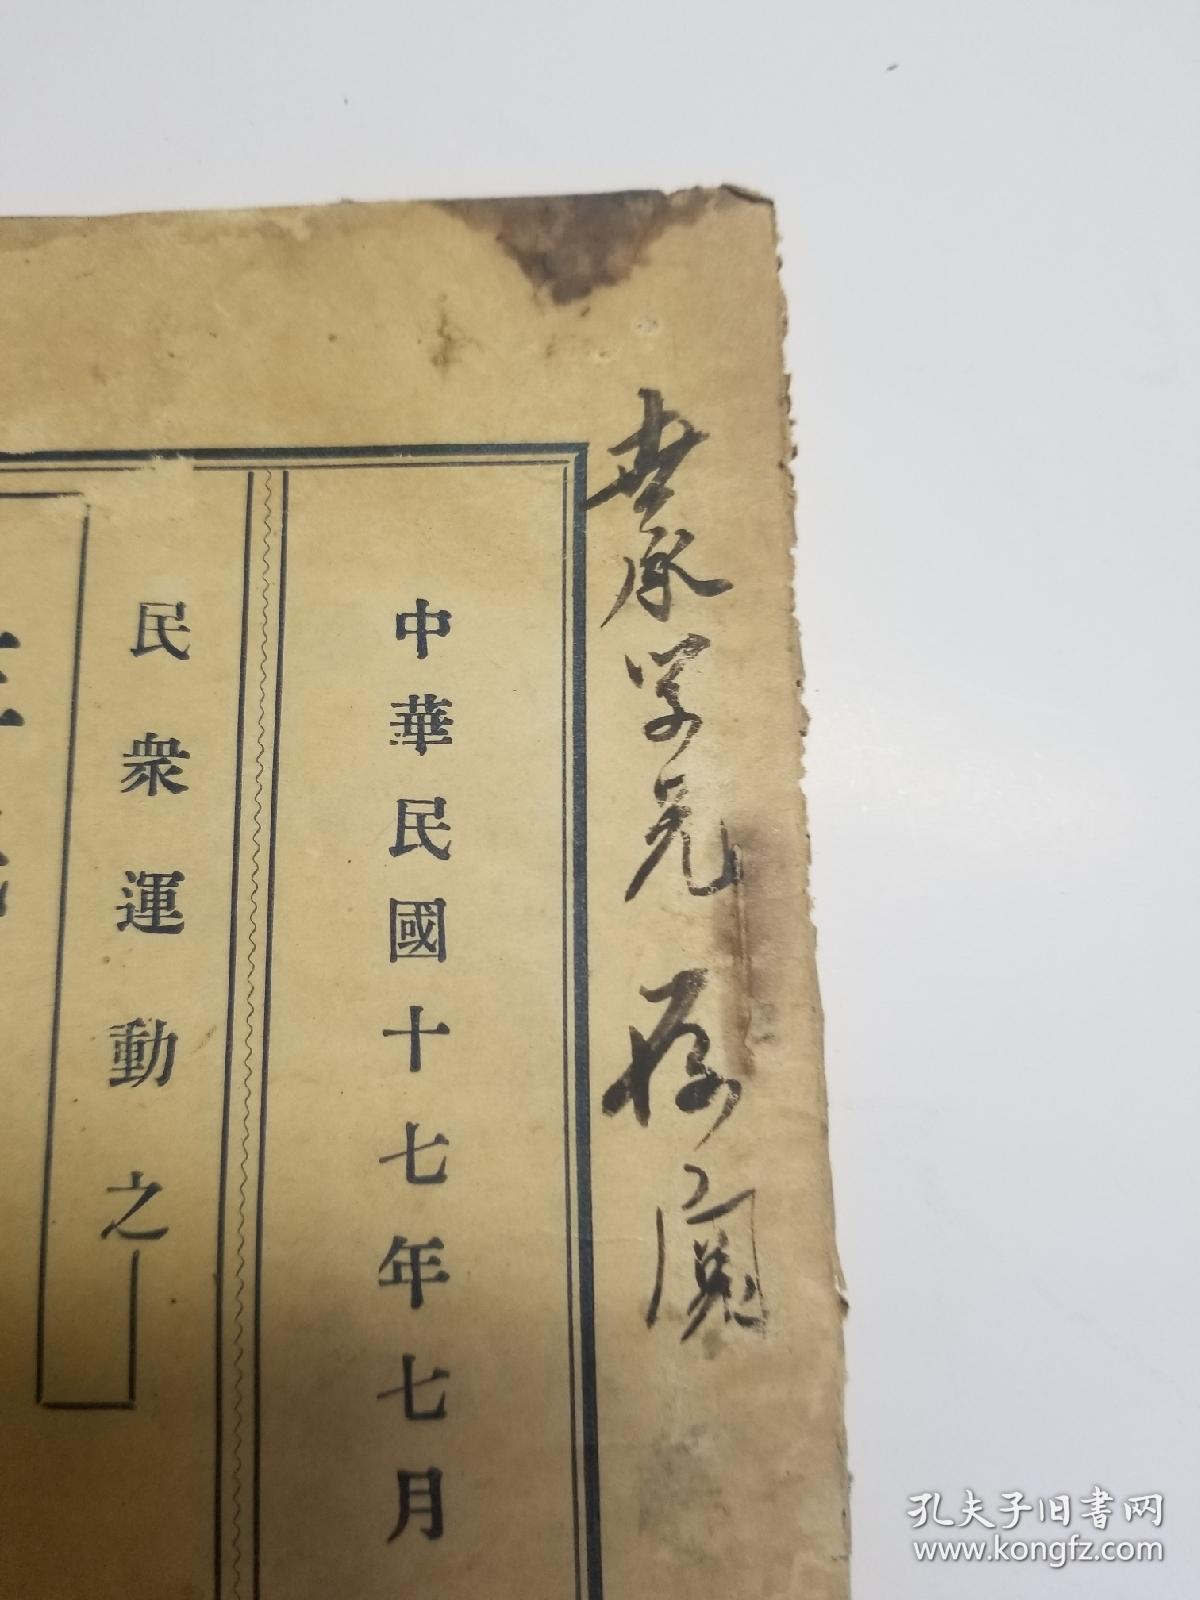 學兄存閱
中華民國十七年七月
民衆運動之
孔夫子旧书网
www.kongfz.com